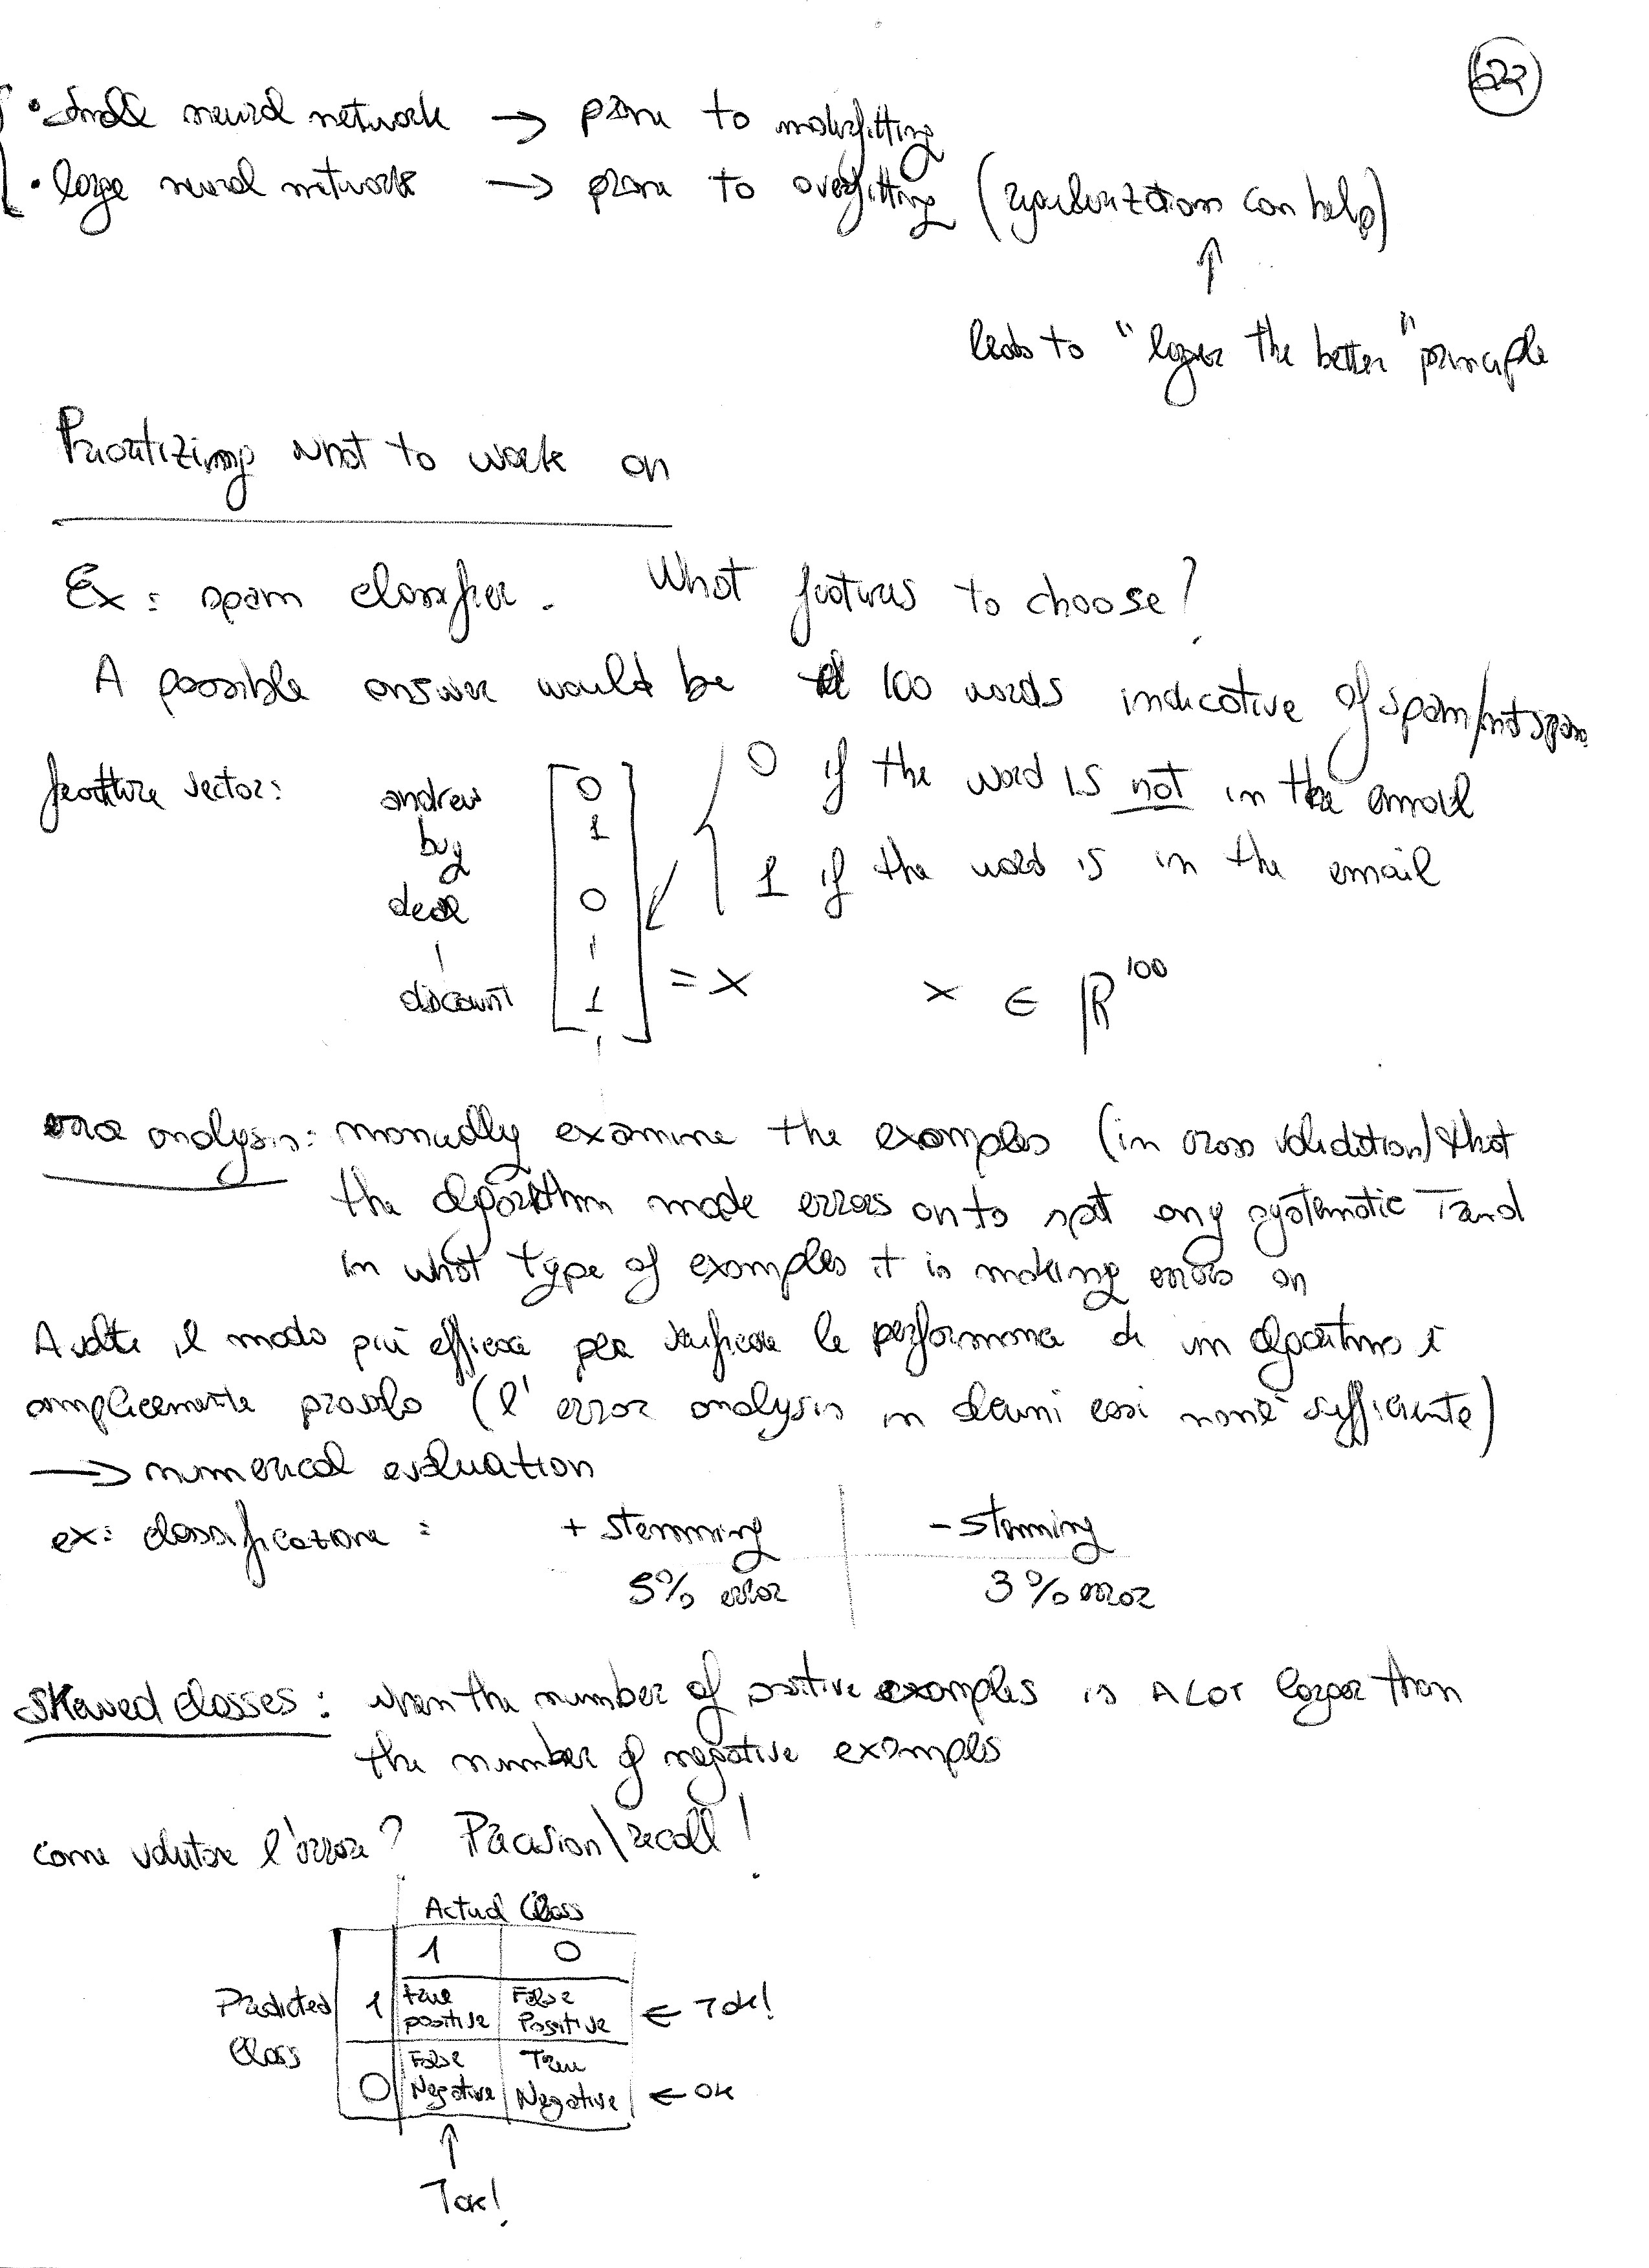 622
• small neural network → prone to underfitting
• large neural network → prone to overfitting (regularization can help)
↑
leads to "larger the better" principle
Prioritizing what to work on
Ex: spam classifier. What features to choose?
A possible answer would be 100 words indicative of spam/not spam
feature vector: andrew 0
buy 1
deal 0
discount 1
0 if the word is not in the email
1 if the word is in the email
= x x ∈ ℝ¹⁰⁰
error analysis: manually examine the examples (in cross validation) that
the algorithm made errors on to spot any systematic trend
in what type of examples it is making errors on
A volte il modo più efficace per verificare le performance di un algoritmo è
semplicemente provarlo (l'error analysis in alcuni casi non è sufficiente)
→ numerical evaluation
ex: classificazione: + stemming - stemming
5% error 3% error
Skewed classes: when the number of positive examples is A LOT larger than
the number of negative examples
come valutare l'errore? Precision\recall!
Actual Class
1 0
Predicted Class
1 True positive False Positive ←
0 False Negative True Negative ← OK
↑